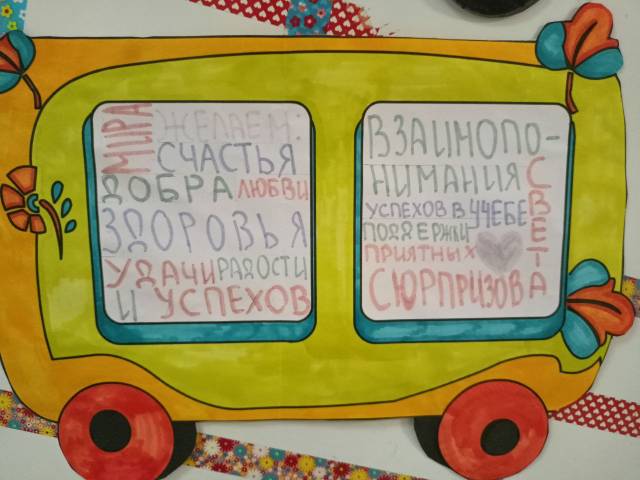 ЖЕЛАЕМ:
МИРА
СЧАСТЬЯ
ДОБРА ЛЮБВИ
ЗДОРОВЬЯ
УДАЧИ РАДОСТИ
И УСПЕХОВ
ВЗАИМОПО-
НИМАНИЯ
СВЕТА
УСПЕХОВ В УЧЕБЕ
ПОДДЕРЖКИ
ПРИЯТНЫХ
СЮРПРИЗОВ